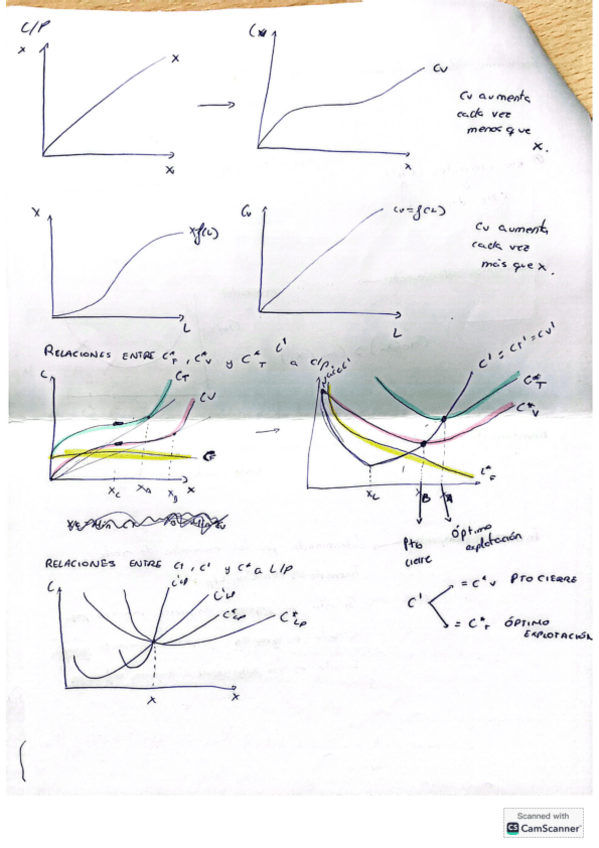 C/P
X
X
X
Cv
X
Cv aumenta
cada vez
menos que
X.
X
X f(L)
L
Cv
Cv = f(L)
L
Cv aumenta
cada vez
más que X.
RELACIONES ENTRE C*F, C*V y C*T C' a C/P
C
CT
CV
CF
XC
XA
XB
X
C' = CT' = CV'
C*T
C*V
C*F
XC
XB
XA
Pto
cierre
Óptimo
explotación
RELACIONES ENTRE CT, C' y C* a L/P
C
C'LP
C*LP
X
X
C'
= C*V PTO CIERRE
= C*T ÓPTIMO
EXPLOTACIÓN
Scanned with
CS CamScanner